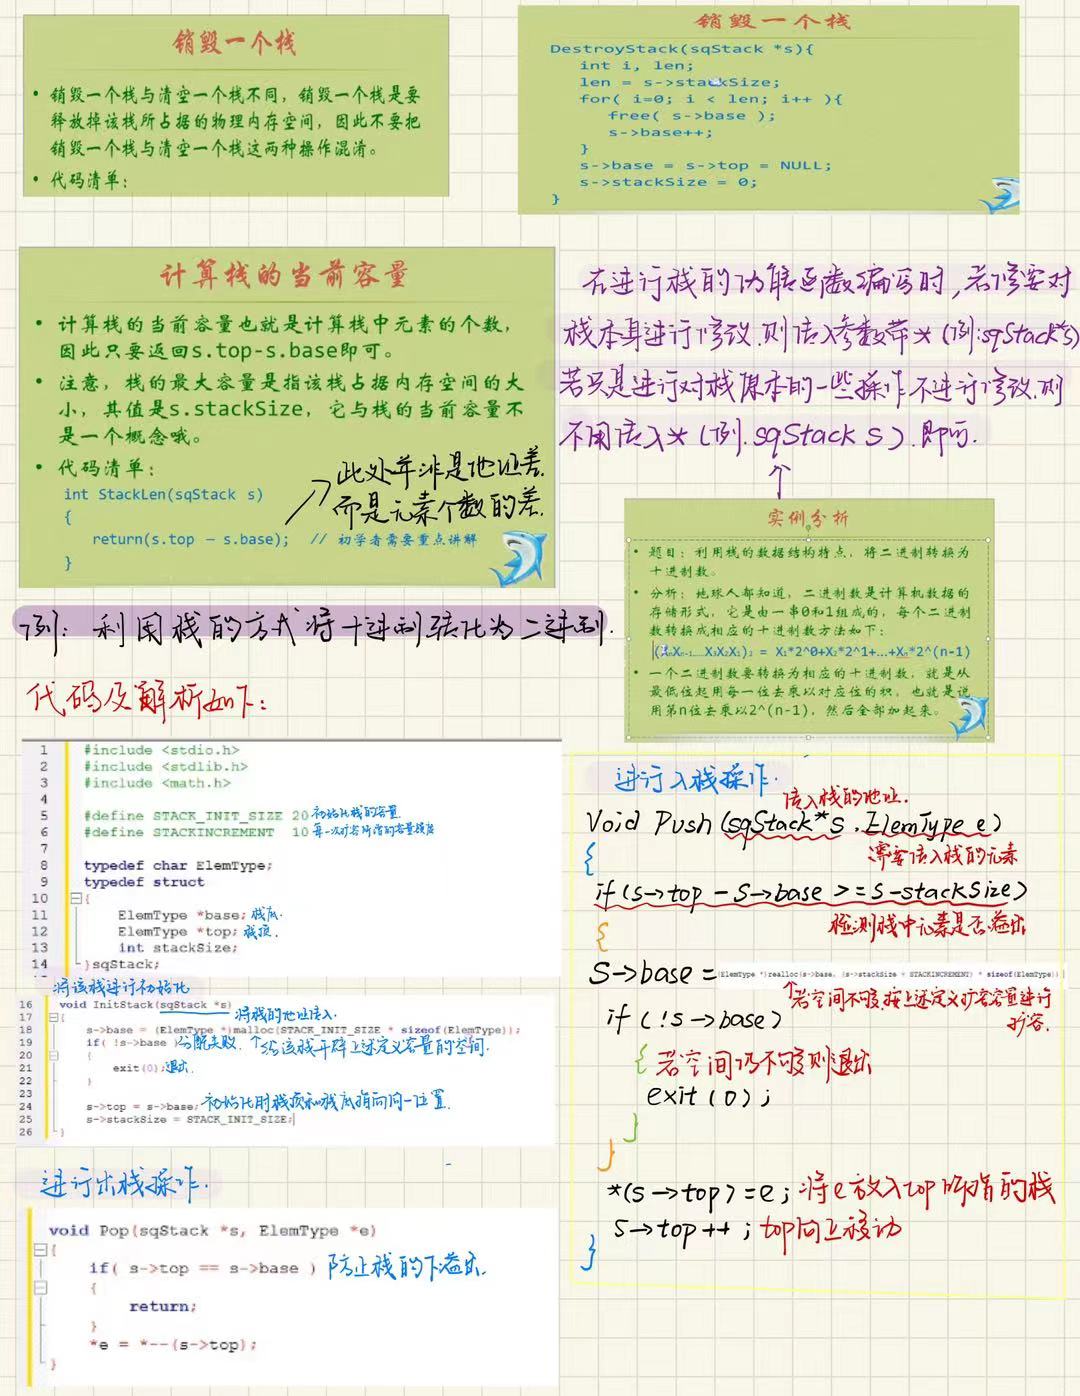 销毁一个栈
• 销毁一个栈与清空一个栈不同，销毁一个栈是要
释放掉该栈所占据的物理内存空间，因此不要把
销毁一个栈与清空一个栈这两种操作混淆。
• 代码清单：
销毁一个栈
DestroyStack(sqStack *s){
int i, len;
len = s->stackSize;
for( i=0; i < len; i++ ){
free( s->base );
s->base++;
}
s->base = s->top = NULL;
s->stackSize = 0;
}
计算栈的当前容量
• 计算栈的当前容量也就是计算栈中元素的个数，
因此只要返回s.top-s.base即可。
• 注意，栈的最大容量是指该栈占据内存空间的大
小，其值是s.stackSize，它与栈的当前容量不
是一个概念哦。
• 代码清单：
int StackLen(sqStack s)
{
return(s.top – s.base); // 初学者需要重点讲解
}
此处并非是地址差.
而是元素个数的差.
在进行栈的功能函数编写时,若需要对
栈本身进行修改.则传入参数带*(例:sqStack*s)
若只是进行对栈原本的一些操作不进行修改.则
不用传入*(例.sqStack s).即可.
实例分析
• 题目：利用栈的数据结构特点，将二进制转换为
十进制数。
• 分析：地球人都知道，二进制数是计算机数据的
存储形式，它是由一串0和1组成的，每个二进制
数转换成相应的十进制数方法如下：
(XnXn-1……X3X2X1)2 = X1*2^0+X2*2^1+…+Xn*2^(n-1)
• 一个二进制数要转换为相应的十进制数，就是从
最低位起用每一位去乘以对应位的积，也就是说
用第n位去乘以2^(n-1)，然后全部加起来。
例：利用栈的方式将十进制转化为二进制.
代码及解析如下：
1 #include <stdio.h>
2 #include <stdlib.h>
3 #include <math.h>
4
5 #define STACK_INIT_SIZE 20 初始化栈的容量
6 #define STACKINCREMENT 10
7
8 typedef char ElemType;
9 typedef struct
10 {
11 ElemType *base; 栈底.
12 ElemType *top; 栈顶.
13 int stackSize;
14 }sqStack;
将该栈进行初始化
16 void InitStack(sqStack *s)
17 { 将栈的地址传入.
18 s->base = (ElemType *)malloc(STACK_INIT_SIZE * sizeof(ElemType));
19 if( !s->base ) 分配失败. 给该栈开辟上述定义容量的空间.
20 {
21 exit(0); 退出.
22 }
23
24 s->top = s->base; 初始化时栈顶和栈底指向同一位置.
25 s->stackSize = STACK_INIT_SIZE;
26 }
进行出栈操作.
void Pop(sqStack *s, ElemType *e)
{
if( s->top == s->base ) 防止栈的下溢出.
{
return;
}
*e = *--(s->top);
}
进行入栈操作.
传入栈的地址.
Void Push(sqStack*s.ElemType e)
需要传入栈的元素
{
if(s->top-s->base>=s-stackSize)
检测栈中元素是否溢出
{
S->base = (ElemType *)realloc(s->base, (s->stackSize + STACKINCREMENT) * sizeof(ElemType))
若空间不够,按上述定义扩容容量进行
扩容.
if(!s->base)
{ 若空间仍不够则退出
exit(0);
}
}
*(s->top)=e; 将e放入top所指的栈
S->top++; top向上移动
}